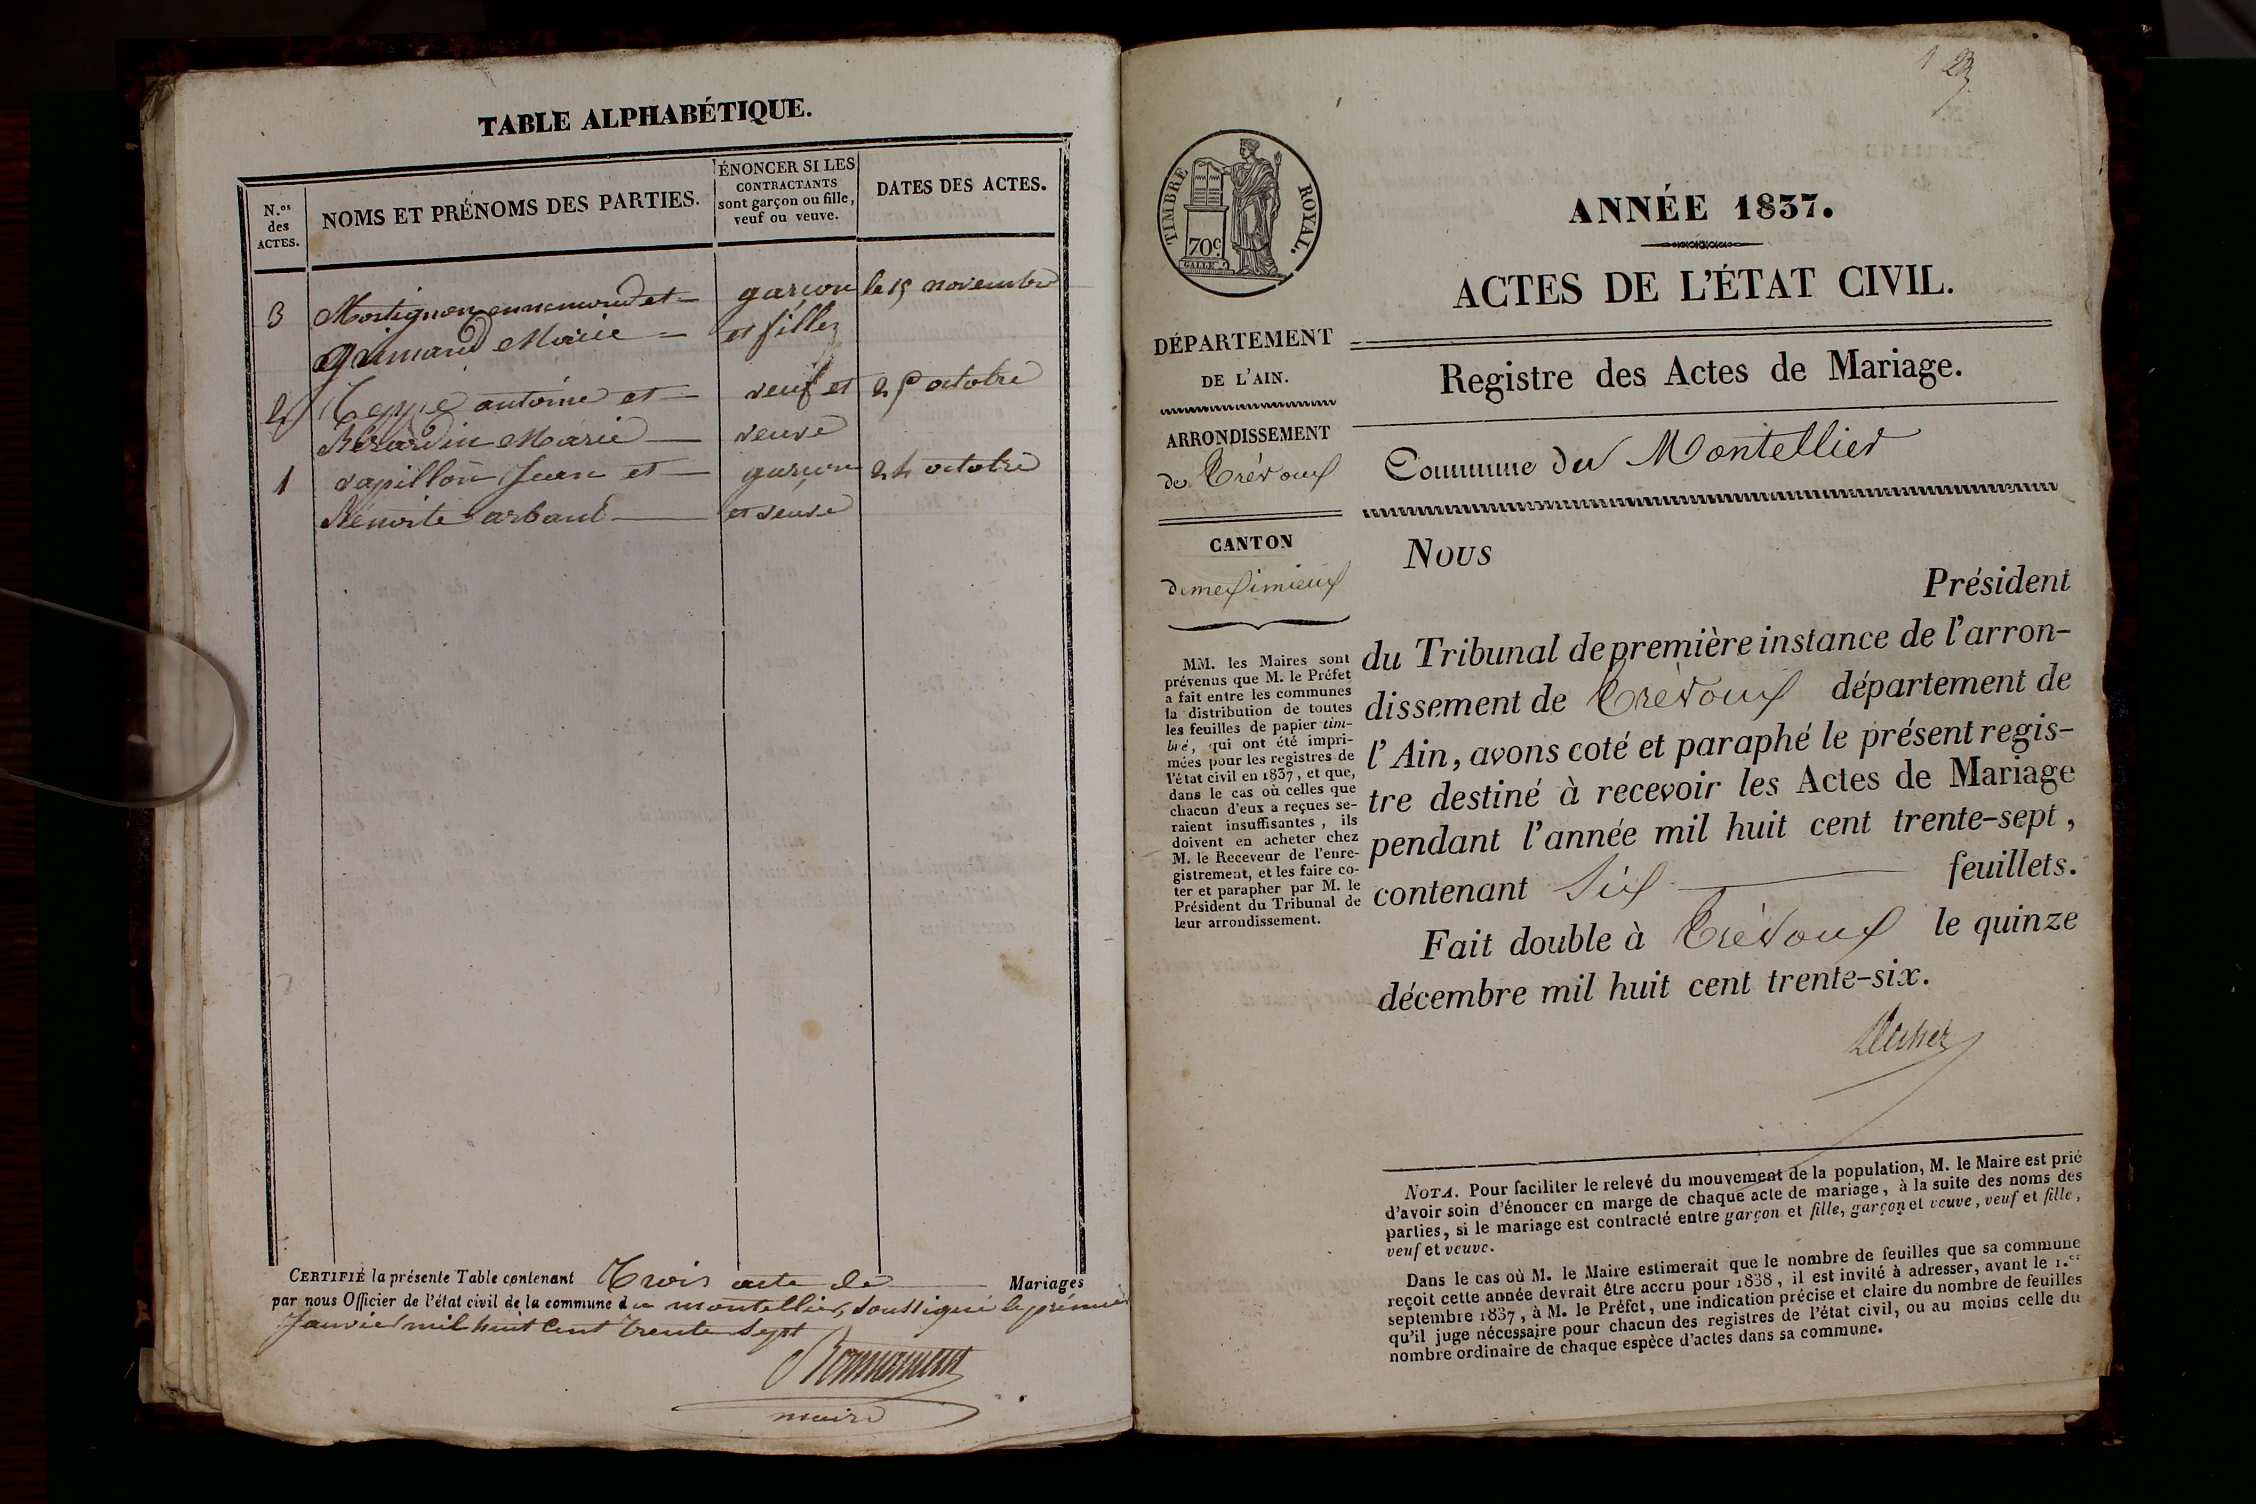 TABLE ALPHABÉTIQUE.
N.os des ACTES.
NOMS ET PRÉNOMS DES PARTIES.
ÉNONCER SI LES
CONTRACTANTS
sont garçon ou fille,
veuf ou veuve.
DATES DES ACTES.
3 et garçon le 15 novembre
Marie et fille
2 antoine et veuf et 25 octobre
Bérardin Marie veuve
1 papillon Jean et garçon 24 octobre
Bénoite arbant et veuve
CERTIFIÉ la présente Table contenant Trois acte de Mariages
par nous Officier de l'état civil de la commune du montellier, soussigné le premier
Janvier mil huit cent trente sept
maire
1
TIMBRE ROYAL.
70c
GALLE
ANNÉE 1837.
ACTES DE L'ÉTAT CIVIL.
Registre des Actes de Mariage.
Commune du Montellier
DÉPARTEMENT
DE L'AIN.
ARRONDISSEMENT
de Trévoux
CANTON
de meximieux
MM. les Maires sont
prévenus que M. le Préfet
a fait entre les communes
la distribution de toutes
les feuilles de papier tim-
bré, qui ont été impri-
mées pour les registres de
l'état civil en 1837, et que,
dans le cas où celles que
chacun d'eux a reçues se-
raient insuffisantes, ils
doivent en acheter chez
M. le Receveur de l'enre-
gistrement, et les faire co-
ter et parapher par M. le
Président du Tribunal de
leur arrondissement.
Nous
Président
du Tribunal de première instance de l'arron-
dissement de Trévoux département de
l'Ain, avons coté et paraphé le présent regis-
tre destiné à recevoir les Actes de Mariage
pendant l'année mil huit cent trente-sept,
contenant Six feuillets.
Fait double à Trévoux le quinze
décembre mil huit cent trente-six.
NOTA. Pour faciliter le relevé du mouvement de la population, M. le Maire est prié
d'avoir soin d'énoncer en marge de chaque acte de mariage, à la suite des noms des
parties, si le mariage est contracté entre garçon et fille, garçon et veuve, veuf et fille,
veuf et veuve.
Dans le cas où M. le Maire estimerait que le nombre de feuilles que sa commune
reçoit cette année devrait être accru pour 1838, il est invité à adresser, avant le 1.er
septembre 1837, à M. le Préfet, une indication précise et claire du nombre de feuilles
qu'il juge nécessaire pour chacun des registres de l'état civil, ou au moins celle du
nombre ordinaire de chaque espèce d'actes dans sa commune.